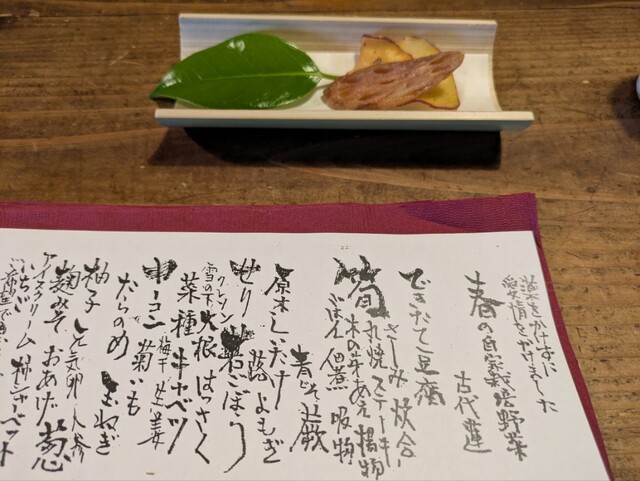 愛情をかけました
春の自家栽培野菜
古代蓮
できたて豆腐
筍
さしみ 炊合
丸焼 ステーキ
木の芽あえ 揚物
ごはん 佃煮 吸物
原木しいたけ
青じそ
蕨
せり
クレソン
岩ごぼう
蕗 よもぎ
雪の下大根 はっさく
菜種 キャベツ
ウーコン 梅干 生姜
たらのめ 菊いも
玉ねぎ
柚子 人参
麹みそ おあげ 葱
アイスクリーム
いちご 柿シャーベット